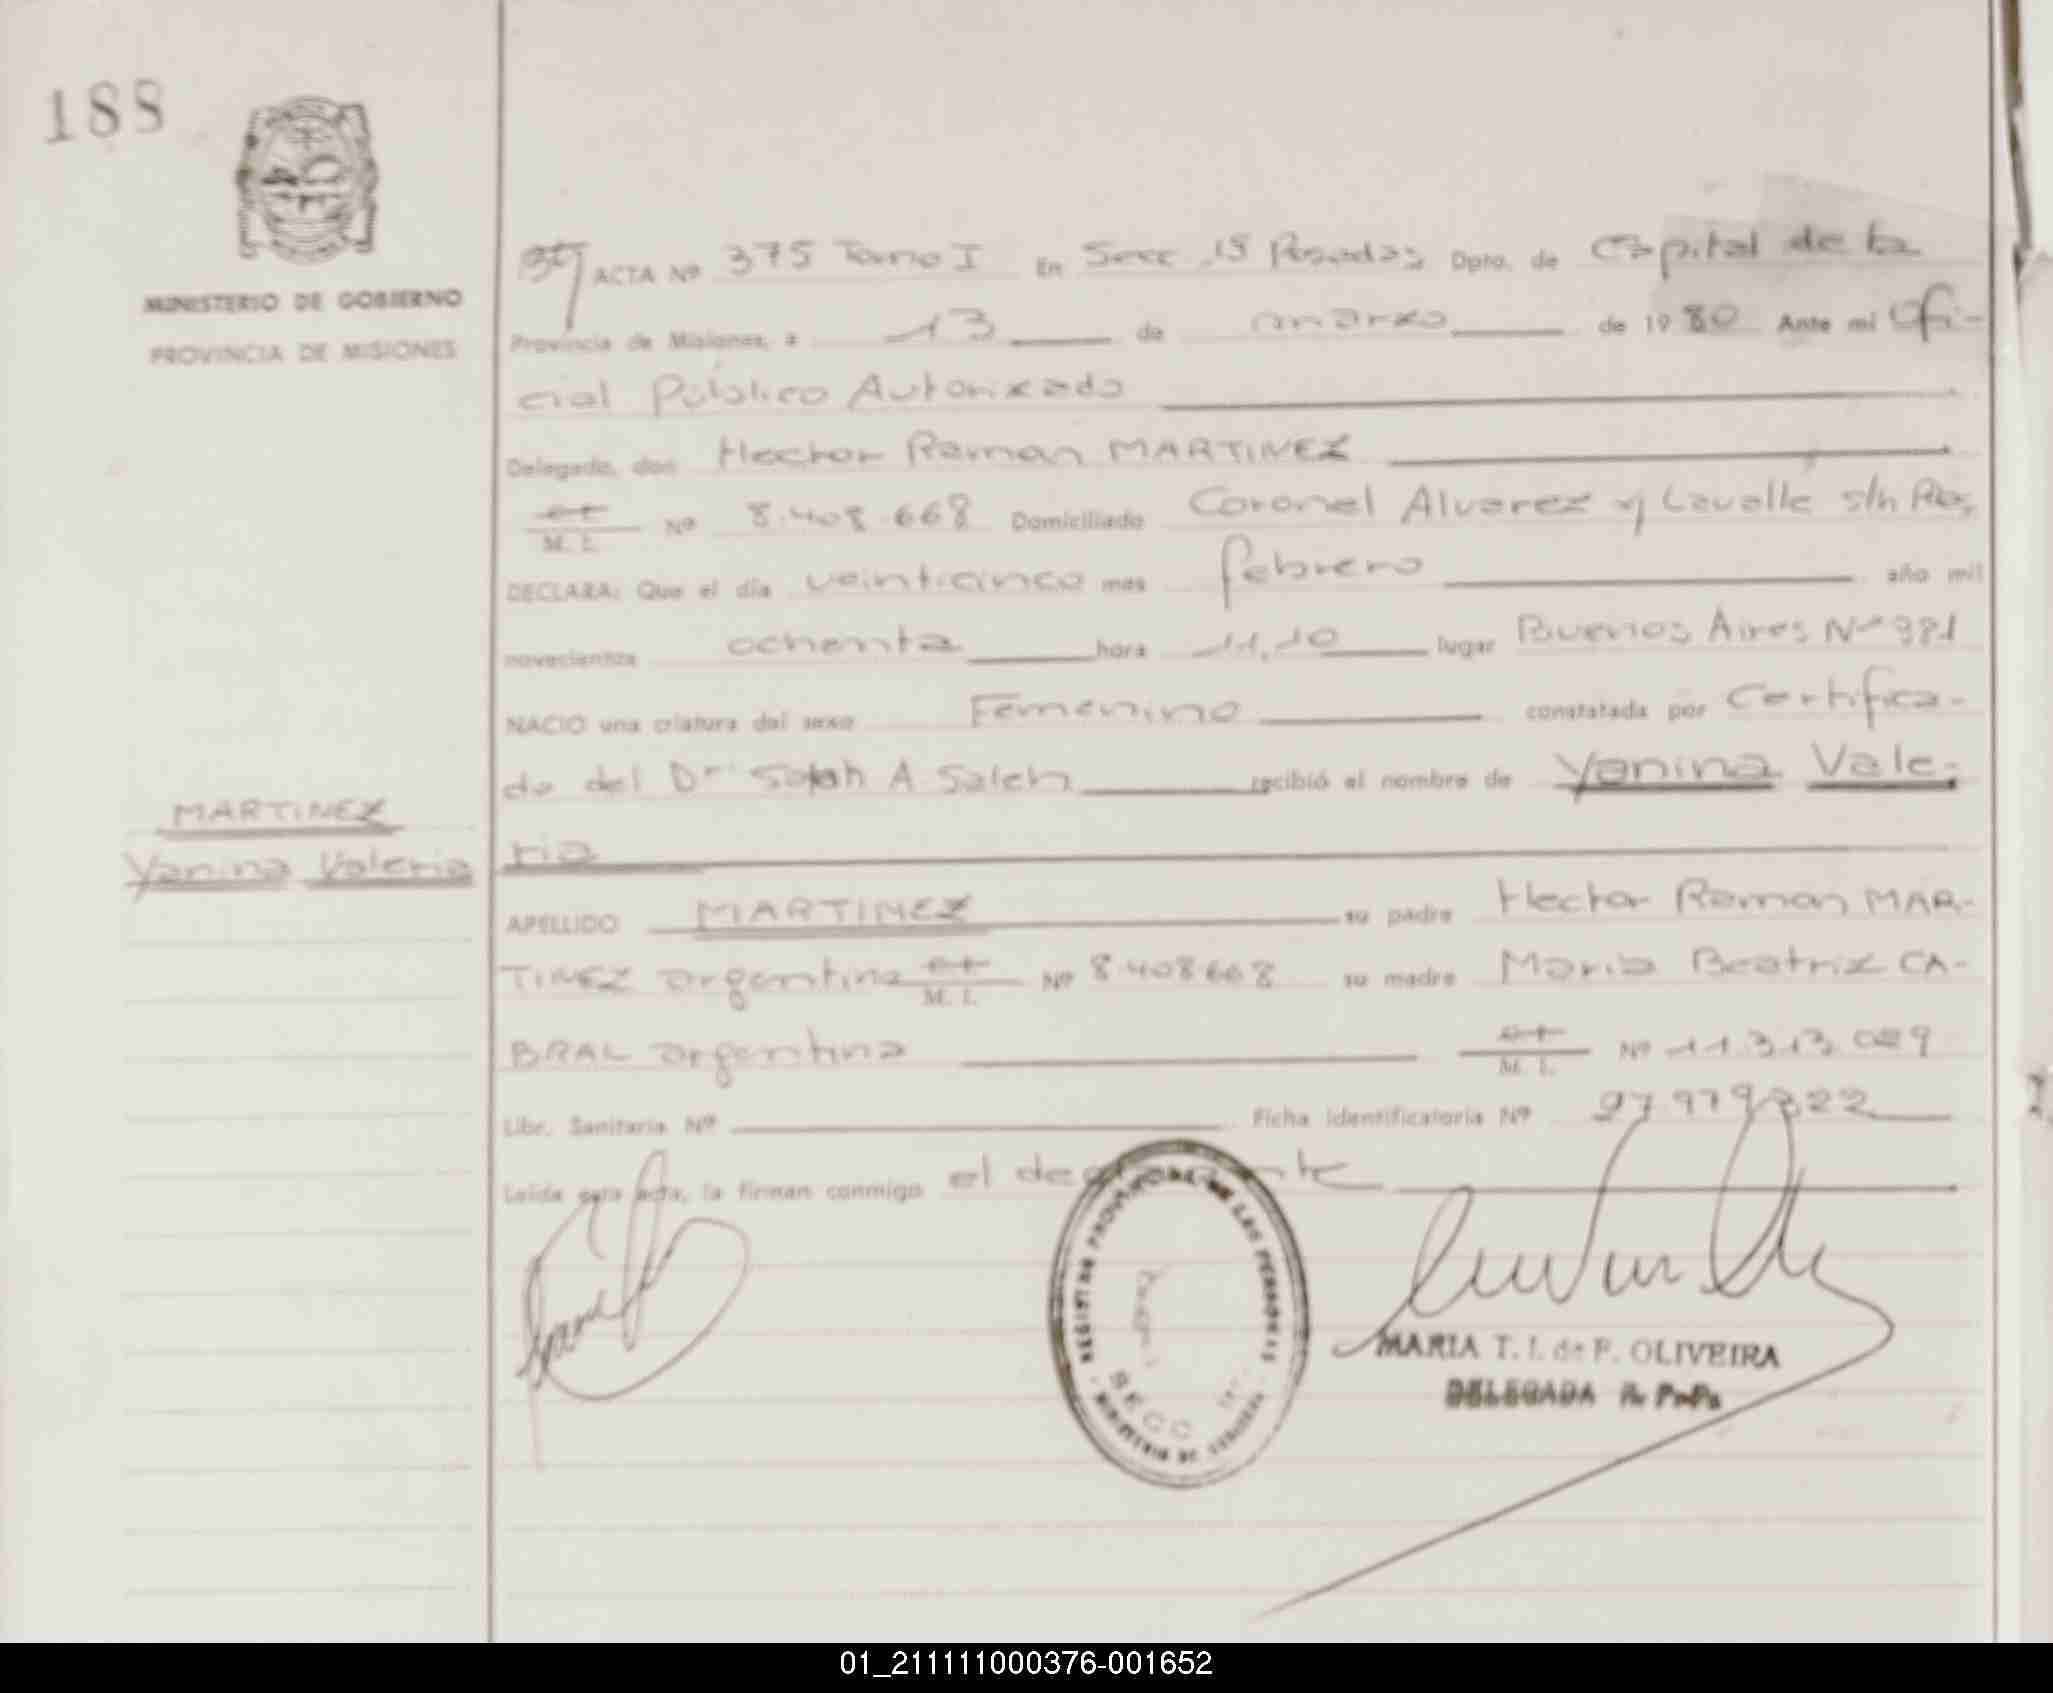 188
MINISTERIO DE GOBIERNO
PROVINCIA DE MISIONES
ACTA Nº 375 Tomo I En Secc 1ª Posadas Dpto. de Capital de la
Provincia de Misiones, a 13 de marzo de 1980 Ante mi Ofi-
cial Público Autorizado
Delegado, don Hector Ramon MARTINEZ
M. I. Nº 8.408.668 Domiciliado Coronel Alvarez y Lavalle s/n Pos,
DECLARA: Que el día veinticinco mes febrero año mil
novecientos ochenta hora 11,10 lugar Buenos Aires Nº
NACIO una criatura del sexo Femenino constatada por Certifica-
do del Dr Salah A Saleh recibió el nombre de Yanina Vale-
MARTINEZ
Yanina Valeria
ria
APELLIDO MARTINEZ su padre Hector Ramon MAR-
TINEZ argentino M. I. Nº 8408668 su madre Maria Beatriz CA-
BRAL argentina M. I. Nº
Libr. Sanitaria Nº Ficha Identificatoria Nº
Leída esta acta, la firman conmigo el
REGISTRO PROVINCIAL DE LAS PERSONAS
SECC
MINISTERIO DE GOBIERNO
MARIA T. I. de P. OLIVEIRA
DELEGADA
01_211111000376-001652